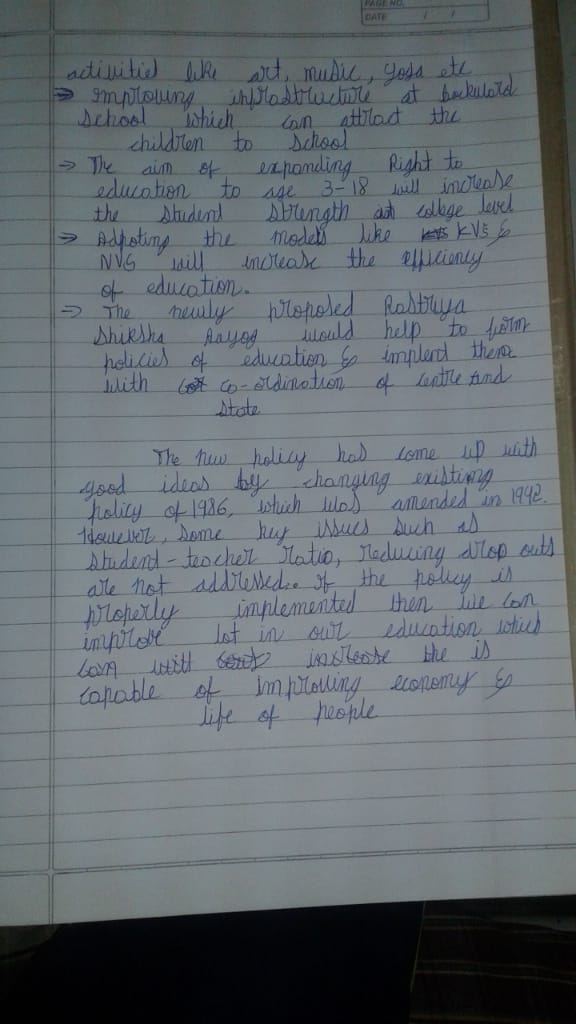 PAGE NO.
DATE / /
activitiel like art, music, yoga etc
=> Improving infrastructure at backward
School which can attract the
children to School
=> The aim of expanding Right to
education to age 3-18 will increase
the student strength at college level
=> Adpoting the models like KVS &
NVS will increase the efficiency
of education.
=> The newly proposed Rastriya
Shiksha Aayog would help to form
policies of education & implend them
with co-ordination of centre and
State
The new policy had come up with
good ideas by changing existing
policy of 1986, which was amended in 1992.
However, Some key issues such as
Student-teacher ratio, reducing drop outs
are not addressed. If the policy is
properly implemented then we can
improve lot in our education which
can will increase the is
capable of improving economy &
life of people